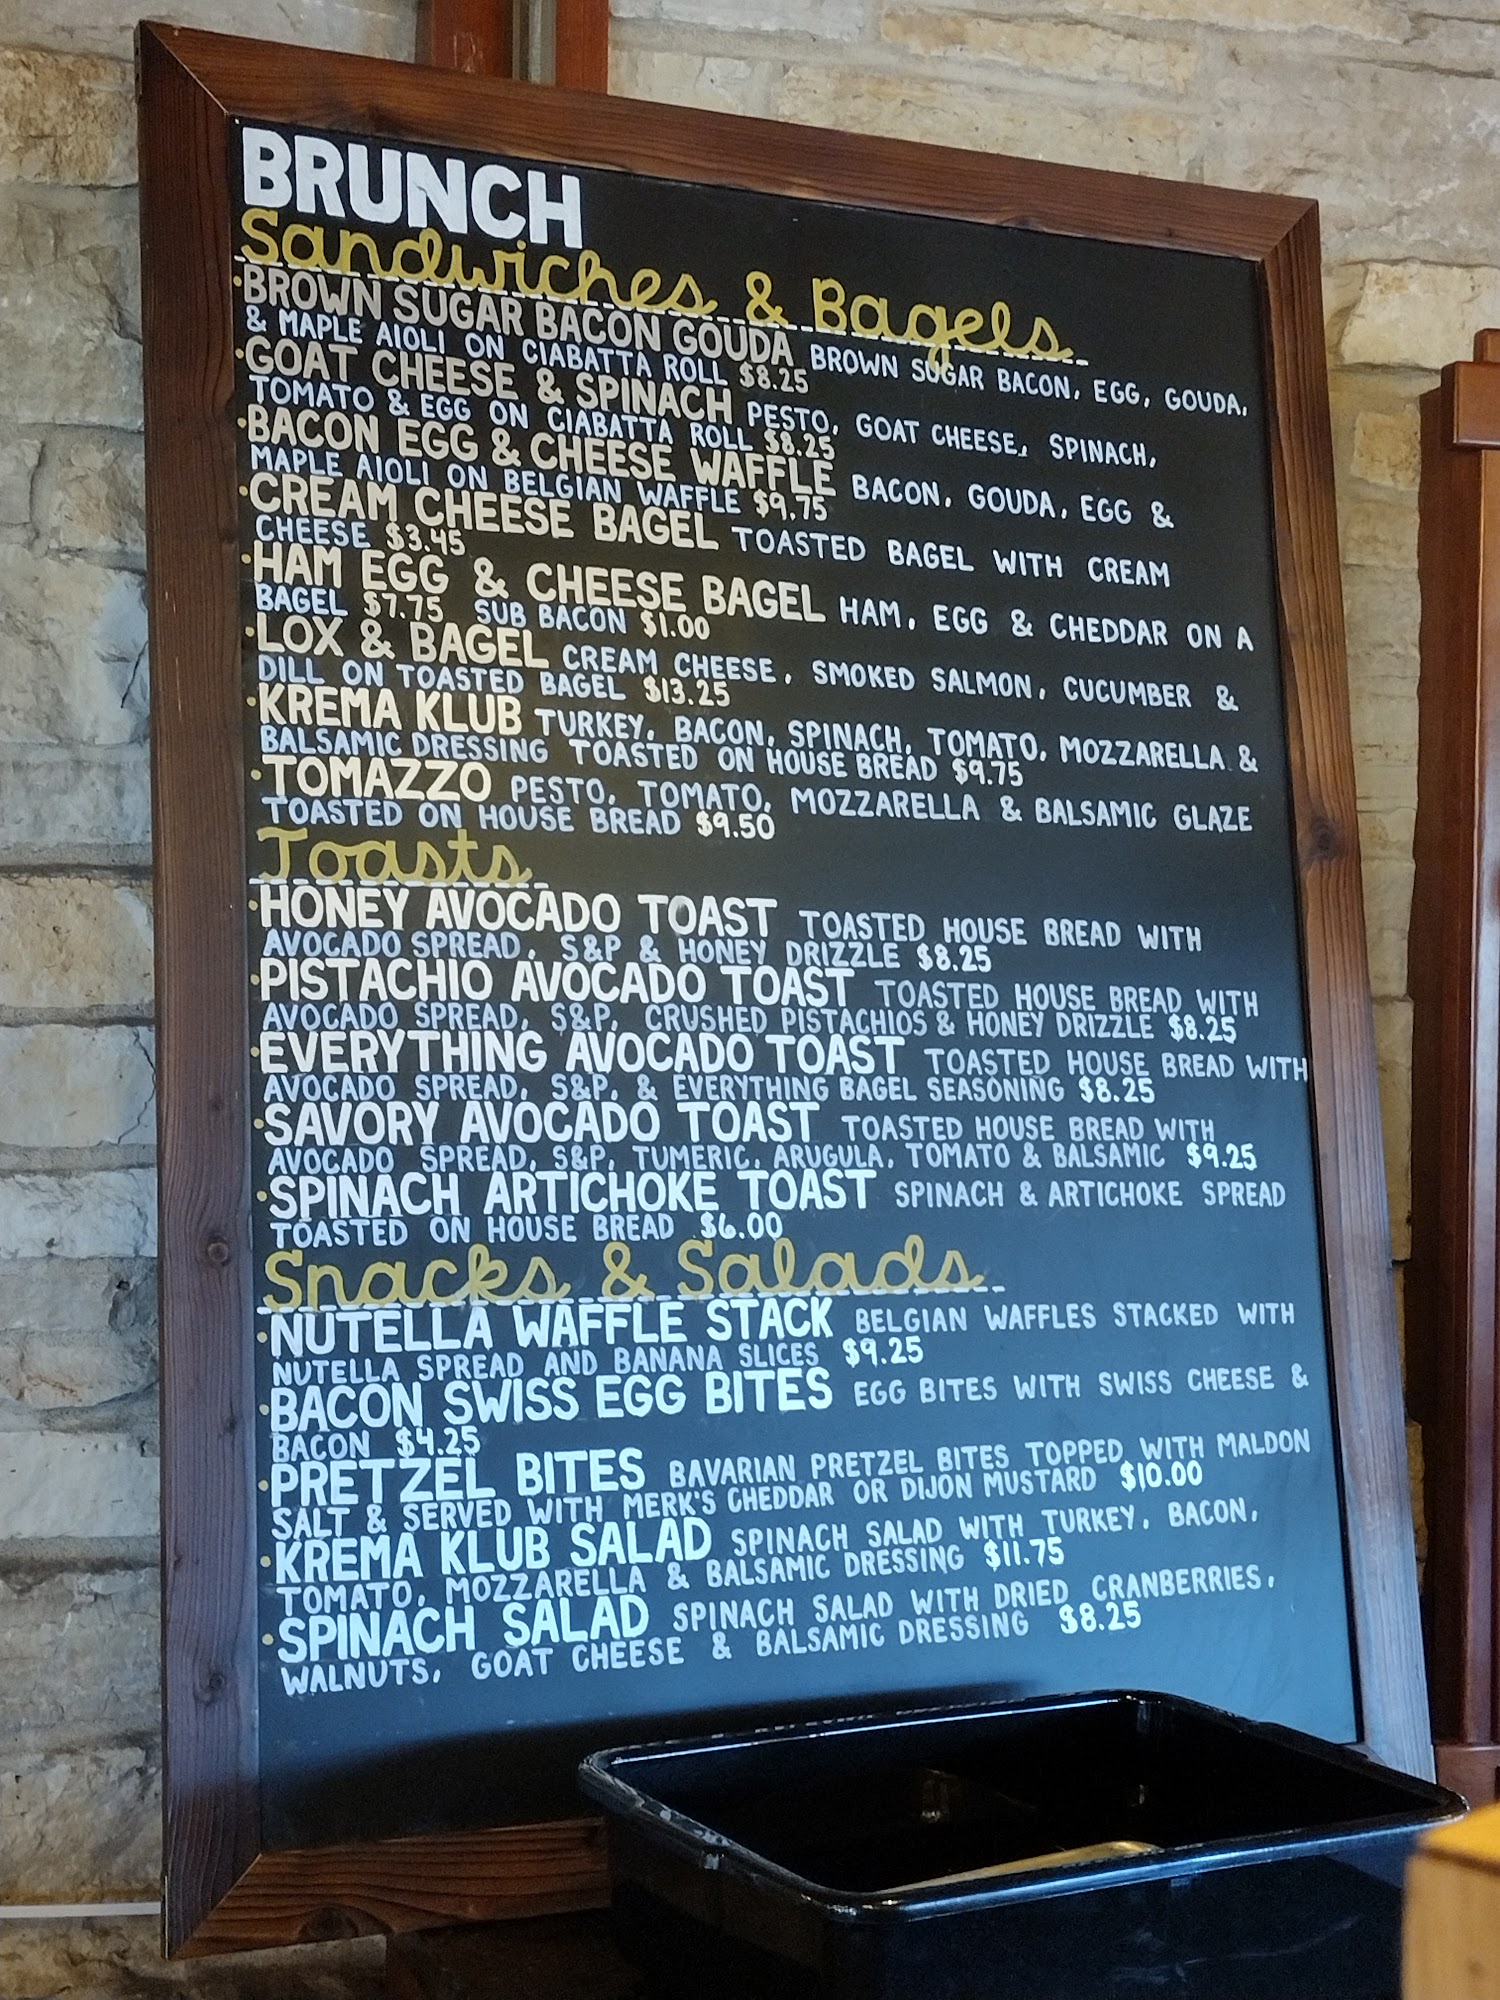 BRUNCH
Sandwiches & Bagels
·BROWN SUGAR BACON GOUDA BROWN SUGAR BACON, EGG, GOUDA,
& MAPLE AIOLI ON CIABATTA ROLL $8.25
·GOAT CHEESE & SPINACH PESTO, GOAT CHEESE, SPINACH,
TOMATO & EGG ON CIABATTA ROLL $8.25
·BACON EGG & CHEESE WAFFLE BACON, GOUDA, EGG &
MAPLE AIOLI ON BELGIAN WAFFLE $9.75
·CREAM CHEESE BAGEL TOASTED BAGEL WITH CREAM
CHEESE $3.45
·HAM EGG & CHEESE BAGEL HAM, EGG & CHEDDAR ON A
BAGEL $7.75 SUB BACON $1.00
·LOX & BAGEL CREAM CHEESE, SMOKED SALMON, CUCUMBER &
DILL ON TOASTED BAGEL $13.25
·KREMA KLUB TURKEY, BACON, SPINACH, TOMATO, MOZZARELLA &
BALSAMIC DRESSING TOASTED ON HOUSE BREAD $9.75
·TOMAZZO PESTO, TOMATO, MOZZARELLA & BALSAMIC GLAZE
TOASTED ON HOUSE BREAD $9.50
Toasts
·HONEY AVOCADO TOAST TOASTED HOUSE BREAD WITH
AVOCADO SPREAD, S&P & HONEY DRIZZLE $8.25
·PISTACHIO AVOCADO TOAST TOASTED HOUSE BREAD WITH
AVOCADO SPREAD, S&P, CRUSHED PISTACHIOS & HONEY DRIZZLE $8.25
·EVERYTHING AVOCADO TOAST TOASTED HOUSE BREAD WITH
AVOCADO SPREAD, S&P, & EVERYTHING BAGEL SEASONING $8.25
·SAVORY AVOCADO TOAST TOASTED HOUSE BREAD WITH
AVOCADO SPREAD, S&P, TUMERIC, ARUGULA, TOMATO & BALSAMIC $9.25
·SPINACH ARTICHOKE TOAST SPINACH & ARTICHOKE SPREAD
TOASTED ON HOUSE BREAD $6.00
Snacks & Salads
·NUTELLA WAFFLE STACK BELGIAN WAFFLES STACKED WITH
NUTELLA SPREAD AND BANANA SLICES $9.25
·BACON SWISS EGG BITES EGG BITES WITH SWISS CHEESE &
BACON $4.25
·PRETZEL BITES BAVARIAN PRETZEL BITES TOPPED WITH MALDON
SALT & SERVED WITH MERK'S CHEDDAR OR DIJON MUSTARD $10.00
·KREMA KLUB SALAD SPINACH SALAD WITH TURKEY, BACON,
TOMATO, MOZZARELLA & BALSAMIC DRESSING $11.75
·SPINACH SALAD SPINACH SALAD WITH DRIED CRANBERRIES,
WALNUTS, GOAT CHEESE & BALSAMIC DRESSING $8.25